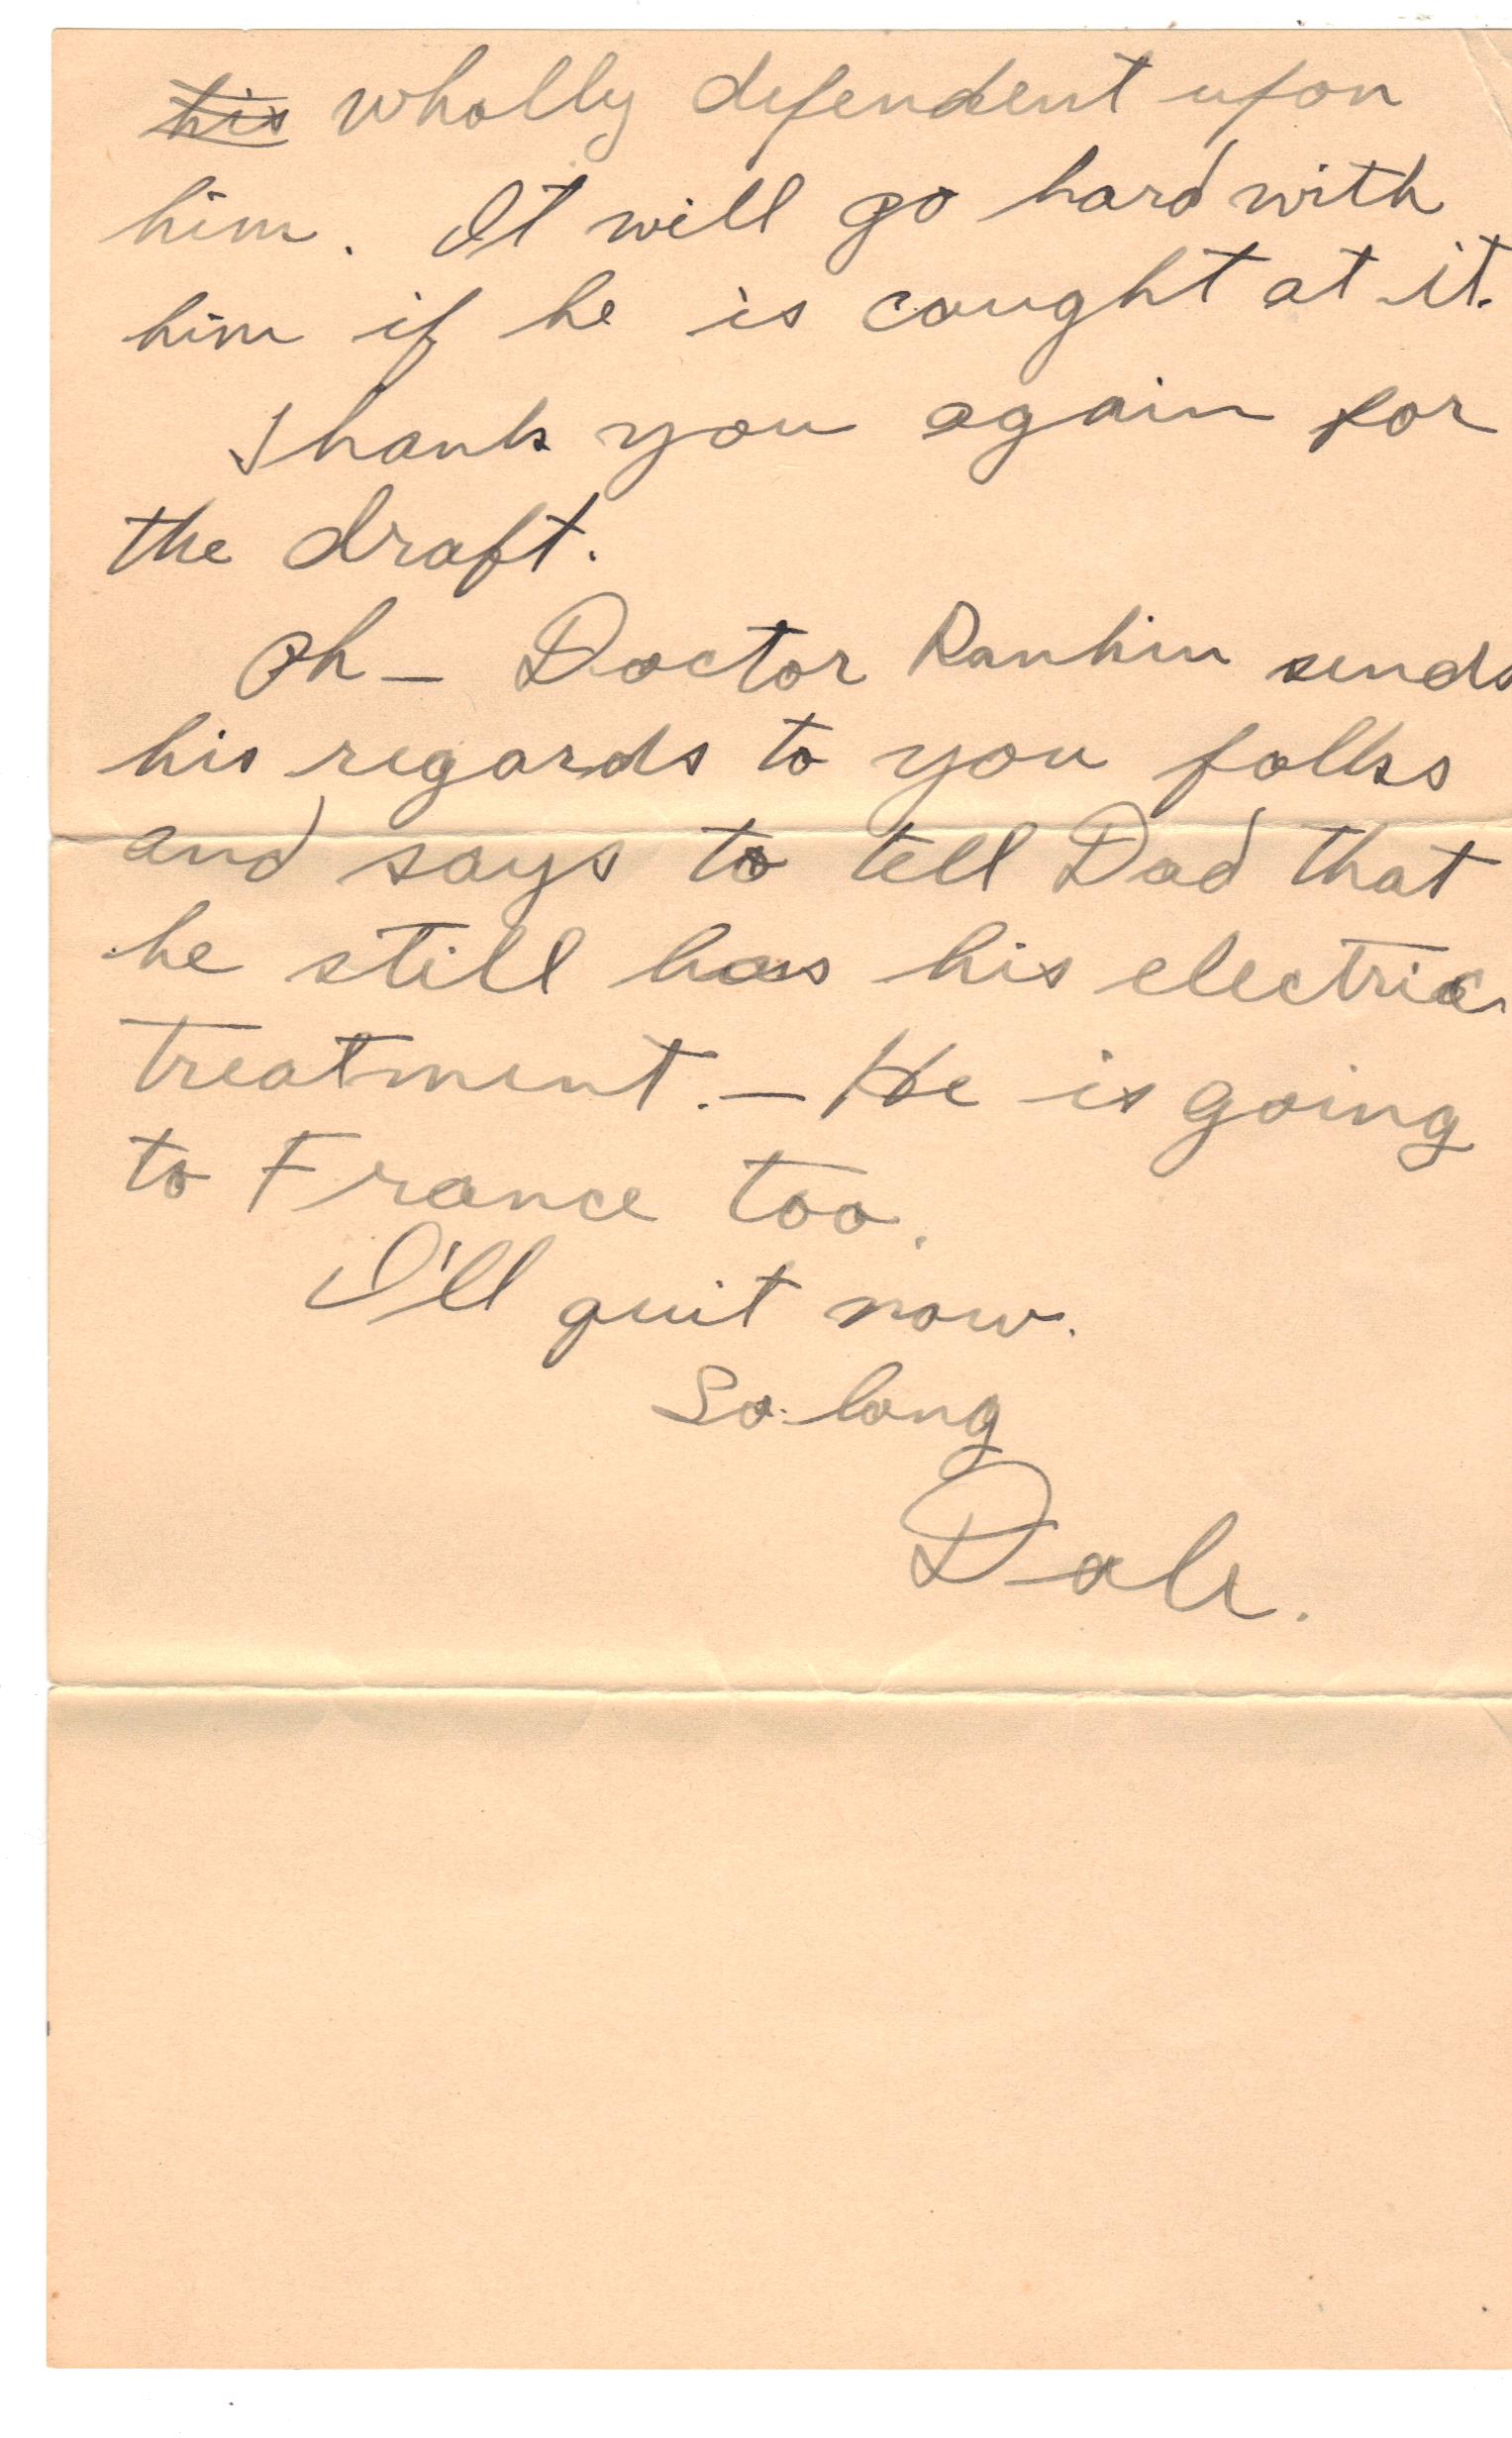 his wholly dependent upon
him. It will go hard with
him if he is caught at it.
Thank you again for
the draft.
Oh - Doctor Rankin sends
his regards to you folks
and says to tell Dad that
he still has his electric
treatment. - He is going
to France too.
I'll quit now.
So long
Dale.